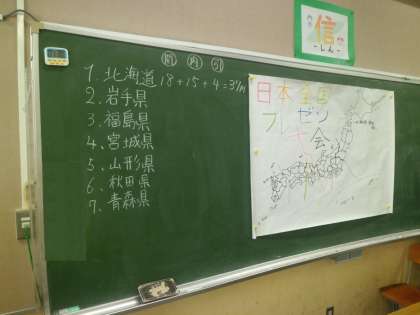 1. 北海道 18+15+4=37m
2. 岩手県
3. 福島県
4、宮城県
5、山形県
6、秋田県
7、青森県
日本全国
プレゼン
大会
信
-しん-